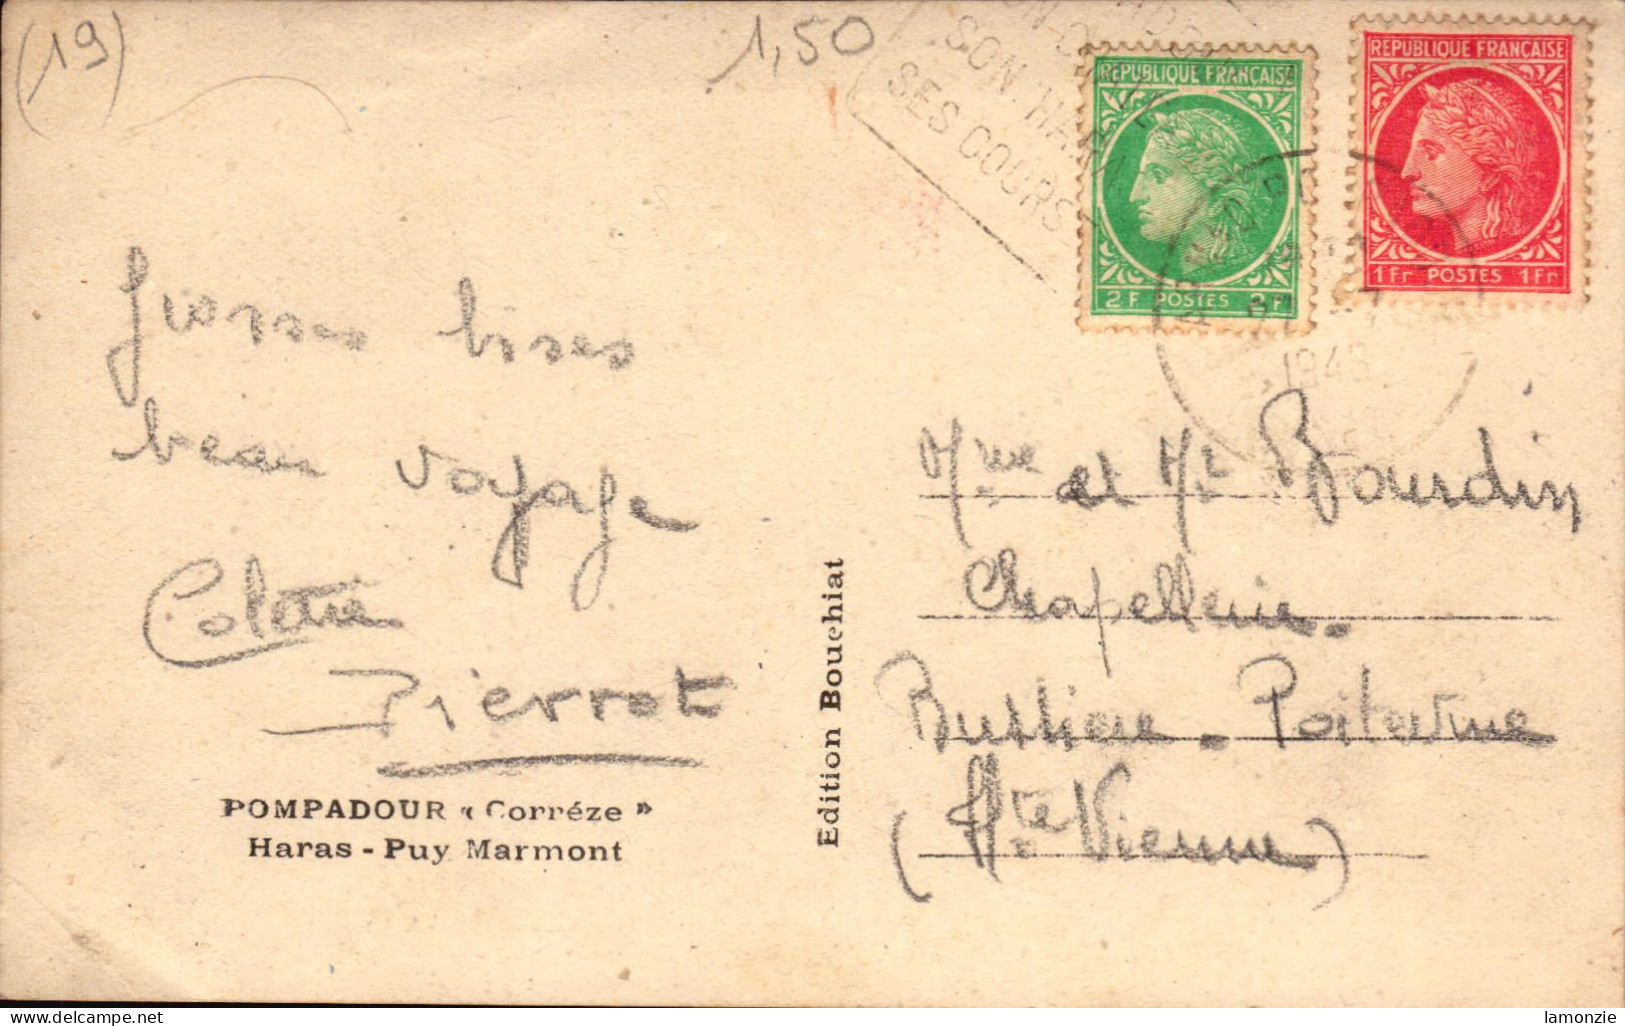 (19)
1,50
SON HARAS
SES COURSES
REPUBLIQUE FRANÇAISE
2 F POSTES 2 F
REPUBLIQUE FRANÇAISE
1 Fr POSTES 1 Fr
1948
grosses bises
beau voyage
Colette
Pierrot
POMPADOUR « Corréze »
Haras - Puy Marmont
Edition Bouchiat
Mme et Mr Bourdin
Chapellerie.
Bussière - Poitevine
(Hte Vienne)
lamonzie